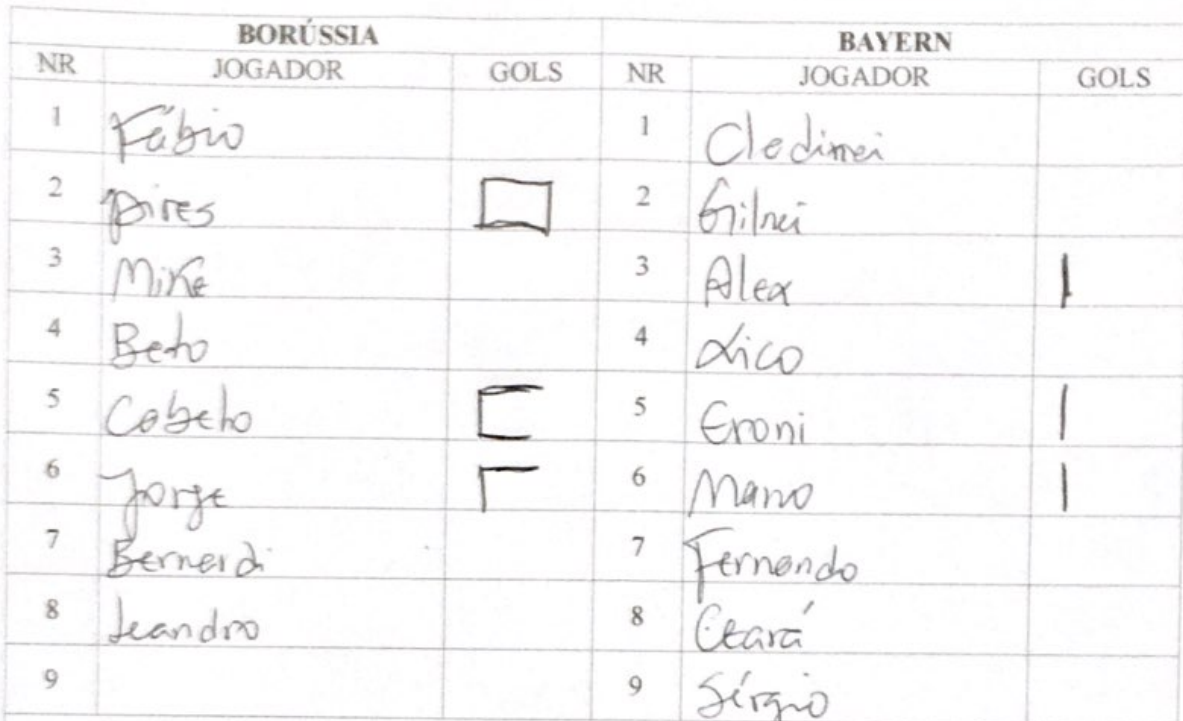 BORÚSSIA BAYERN
NR JOGADOR GOLS NR JOGADOR GOLS
1 Fábio 1 Cledinei
2 Pires 2 Gilnei
3 Mike 3 Alex
4 Beto 4 Lico
5 Cabeto 5 Eroni
6 Jorge 6 Mano
7 Bernardi 7 Fernando
8 Leandro 8 Ceará
9 9 Sérgio